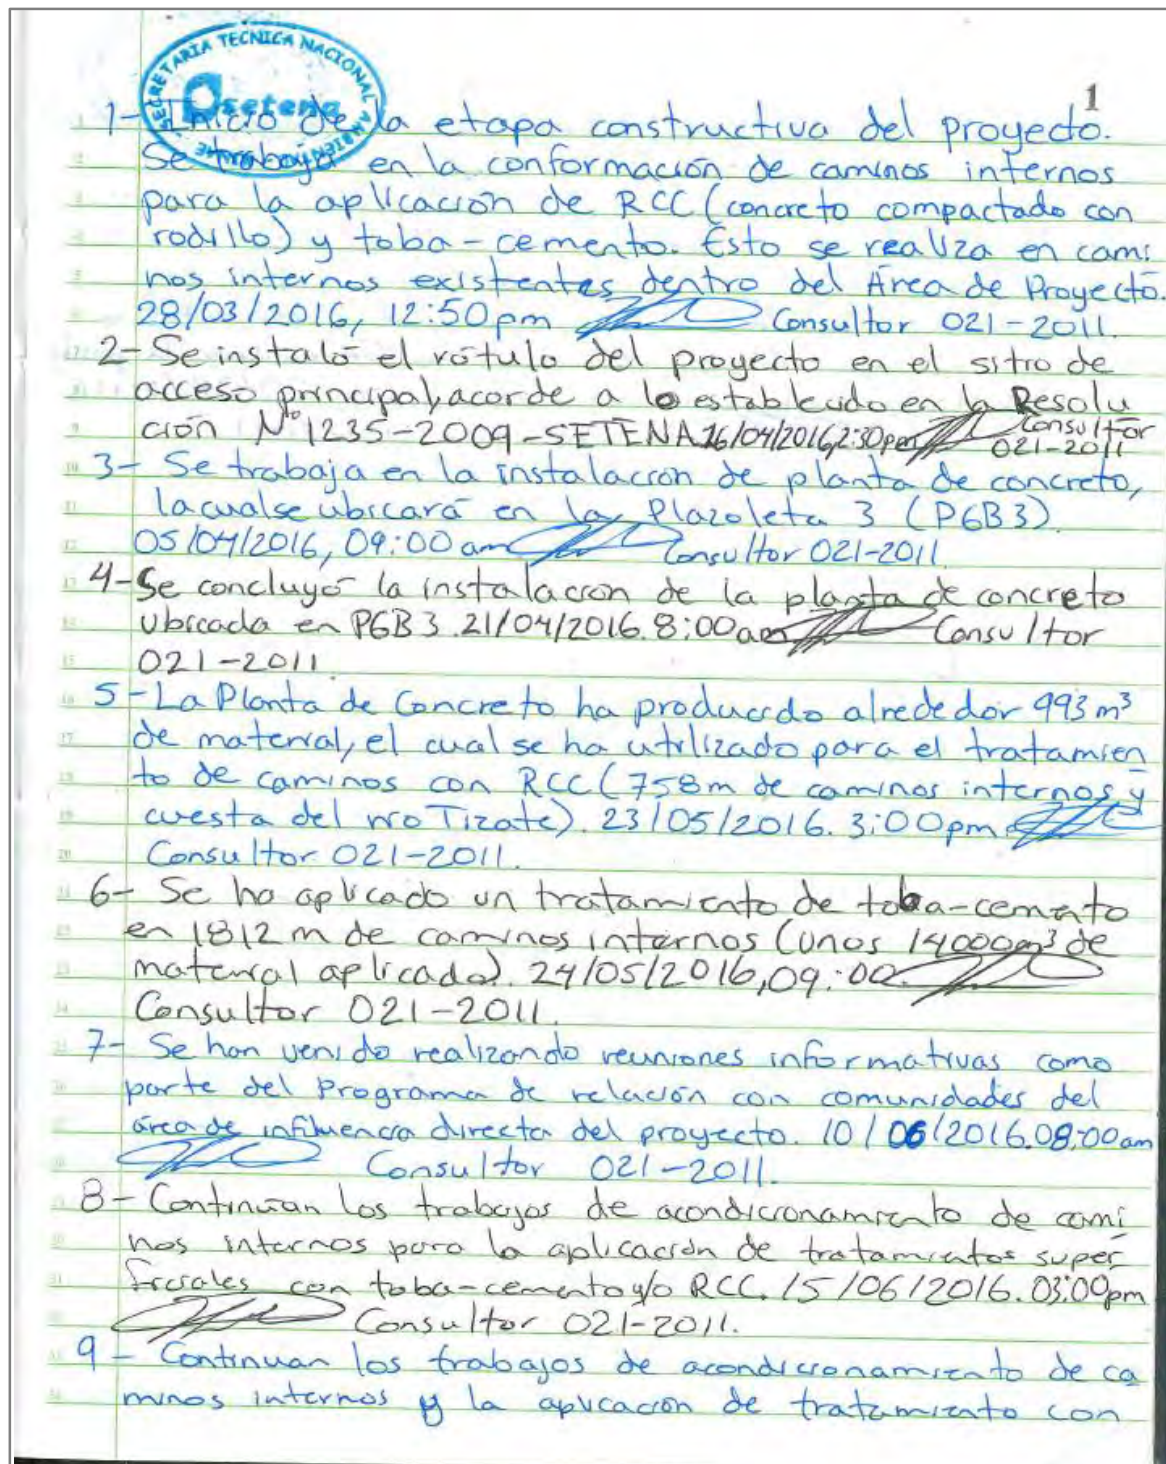 SECRETARIA TECNICA NACIONAL AMBIENTAL
setena
1
1- Inicio de la etapa constructiva del proyecto.
Se trabaja en la conformación de caminos internos
para la aplicación de RCC (concreto compactado con
rodillo) y toba-cemento. Esto se realiza en cami
nos internos existentes dentro del Área de Proyecto.
28/03/2016, 12:50pm Consultor 021-2011.
2- Se instaló el rótulo del proyecto en el sitio de
acceso principal, acorde a lo establecido en la Resolu
ción N° 1235-2009-SETENA 16/04/2016, 2:30pm Consultor
021-2011
3- Se trabaja en la instalación de planta de concreto,
la cual se ubicará en la Plazoleta 3 (PGB3)
05/04/2016, 09:00 am Consultor 021-2011
4- Se concluyó la instalación de la planta de concreto
ubicada en PGB3. 21/04/2016. 8:00am Consultor
021-2011
5- La Planta de Concreto ha producido alrededor 993 m³
de material, el cual se ha utilizado para el tratamien
to de caminos con RCC (758m de caminos internos y
cuesta del río Tizate). 23/05/2016. 3:00pm
Consultor 021-2011.
6- Se ha aplicado un tratamiento de toba-cemento
en 1812 m de caminos internos (unos 14000m³ de
material aplicado). 24/05/2016, 09:00
Consultor 021-2011.
7- Se han venido realizando reuniones informativas como
parte del Programa de relación con comunidades del
área de influencia directa del proyecto. 10/06/2016. 08:00am
Consultor 021-2011.
8- Continúan los trabajos de acondicionamiento de cami
nos internos para la aplicación de tratamientos super
ficiales con toba-cemento y/o RCC. 15/06/2016. 03:00pm
Consultor 021-2011.
9- Continuan los trabajos de acondicionamiento de ca
minos internos y la aplicación de tratamiento con